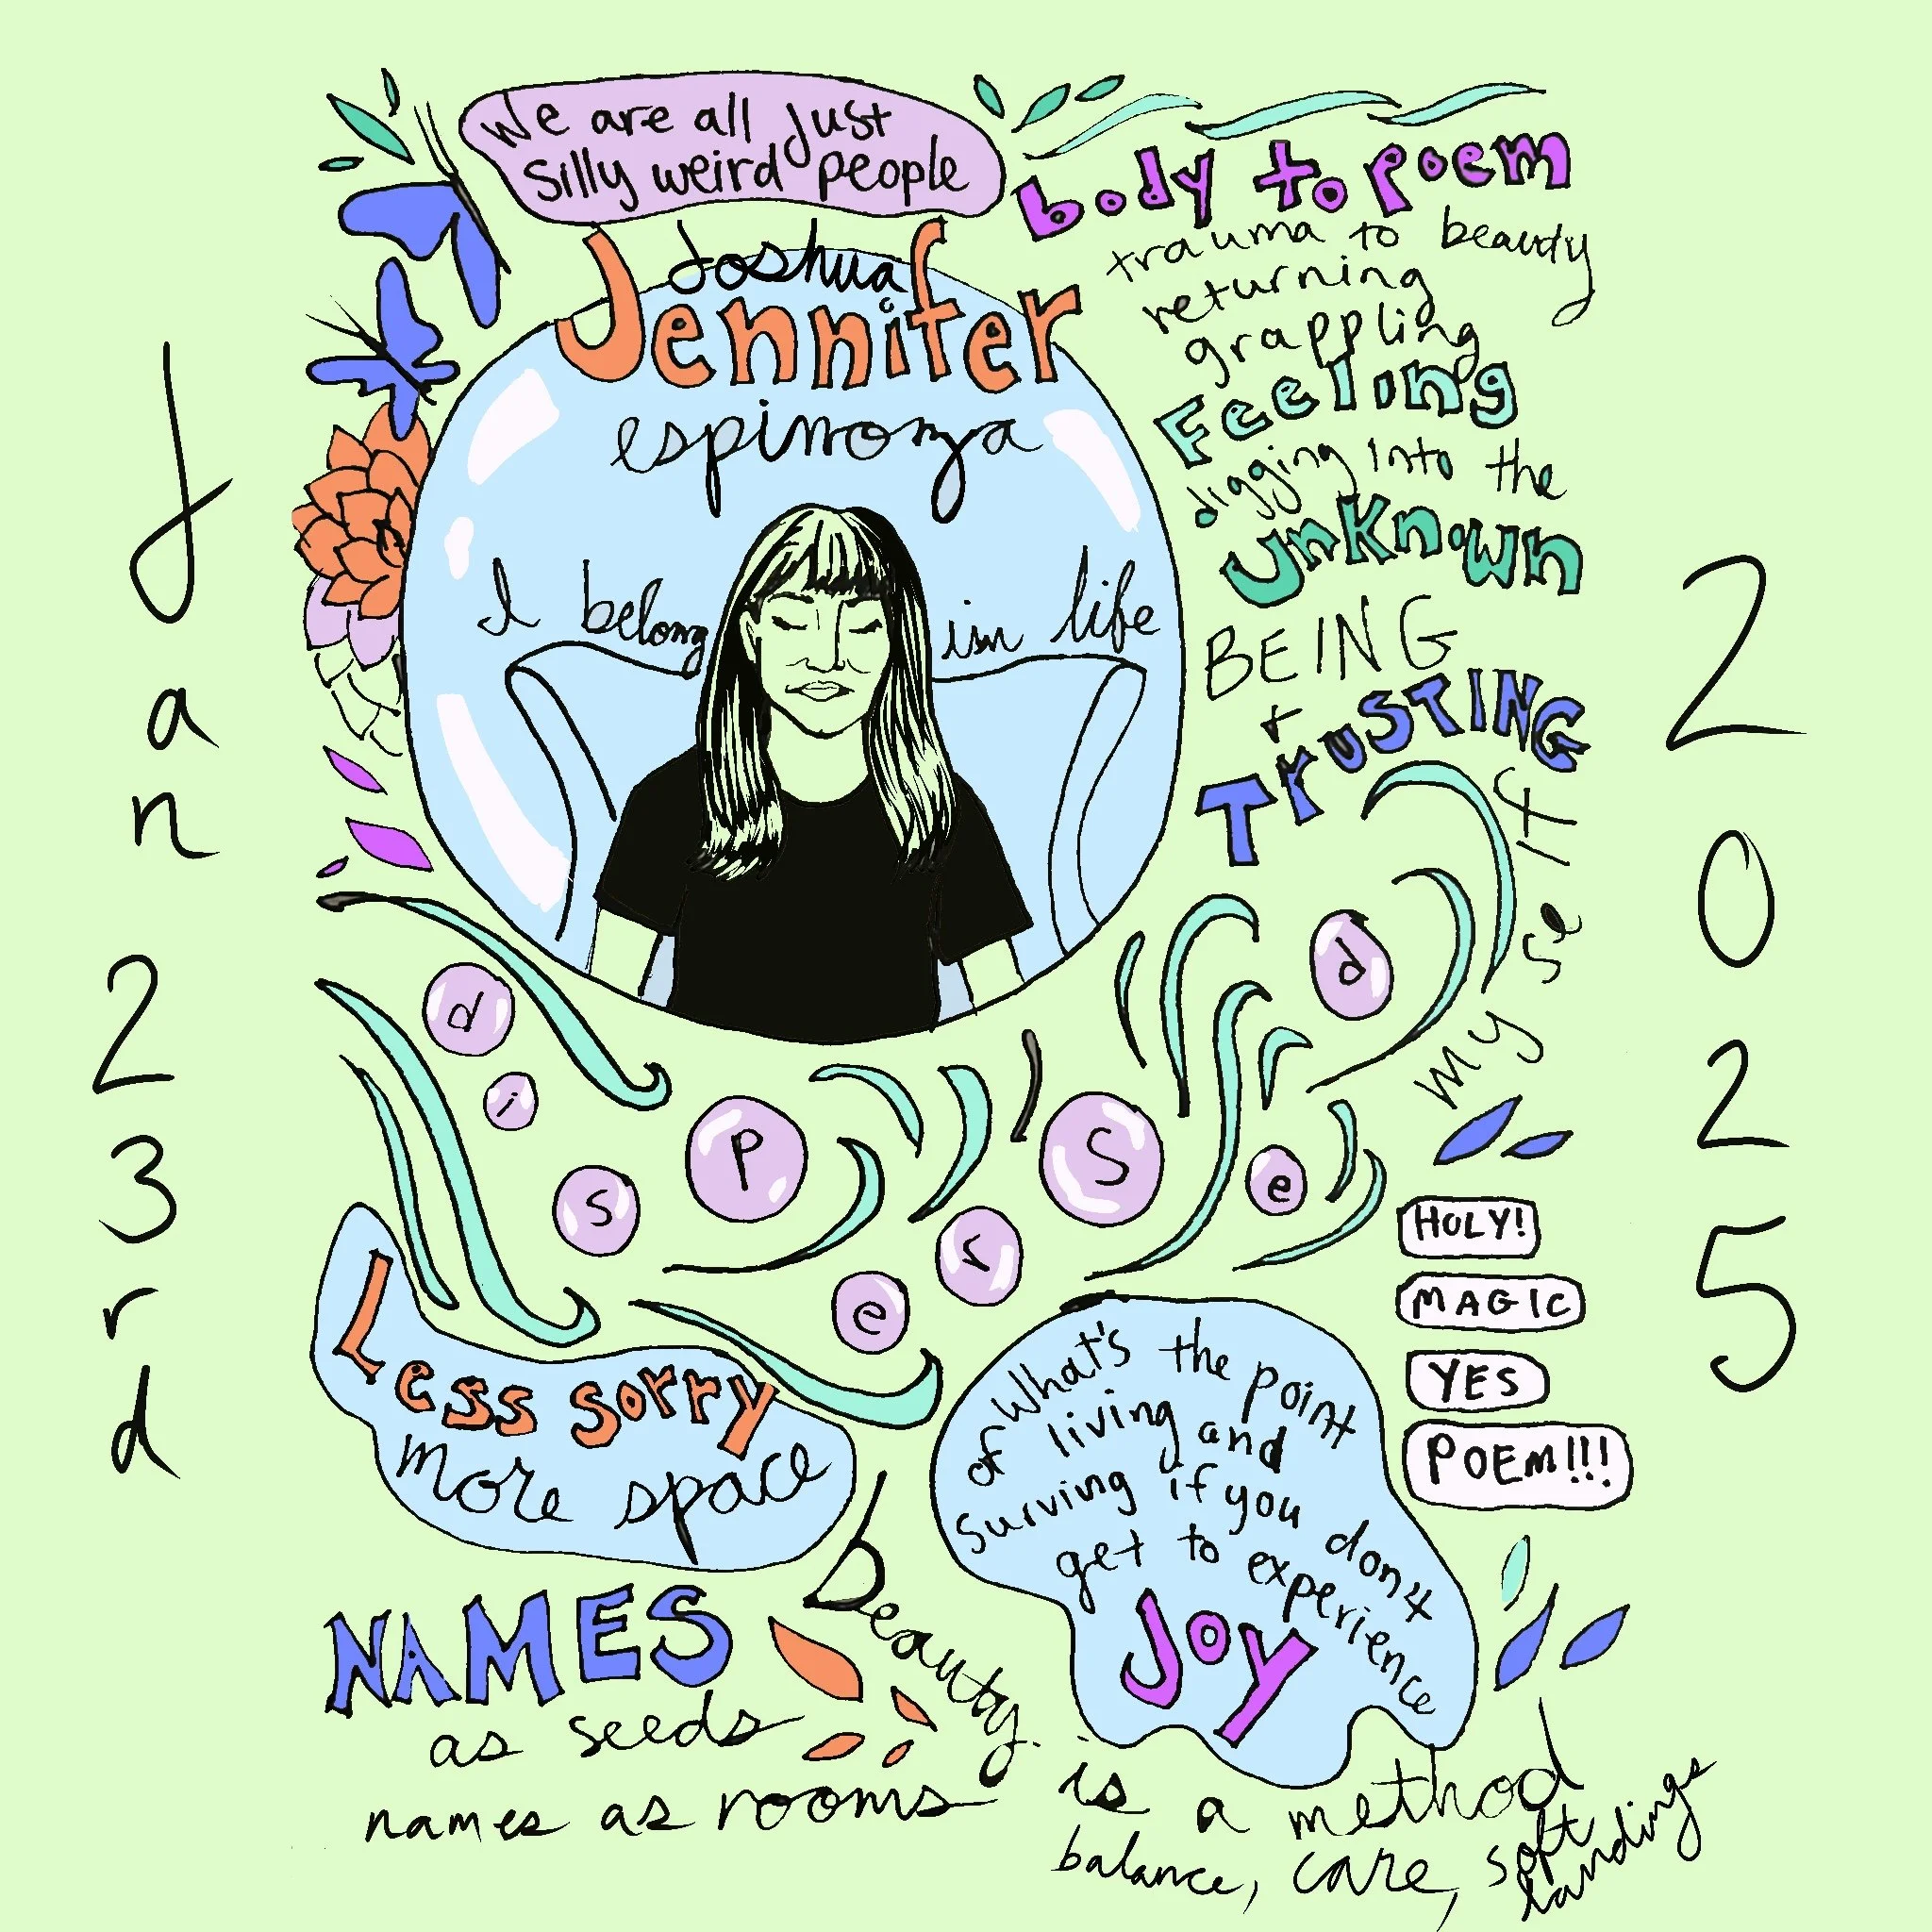 We are all just
silly weird people
Joshua
Jennifer
espinoza
I belong in life
body to poem
trauma to beauty
returning
grappling
Feeling
digging into the
unknown
BEING
+
TrusTING
my self
Jan 23rd
2025
dispersed
HOLY!
MAGIC
YES
POEM!!!
Less sorry
more space
What's the point
of living and
surviving if you dont
get to experience
Joy
NAMES
as seeds
names as rooms
beauty is a method
balance, care, soft
landings